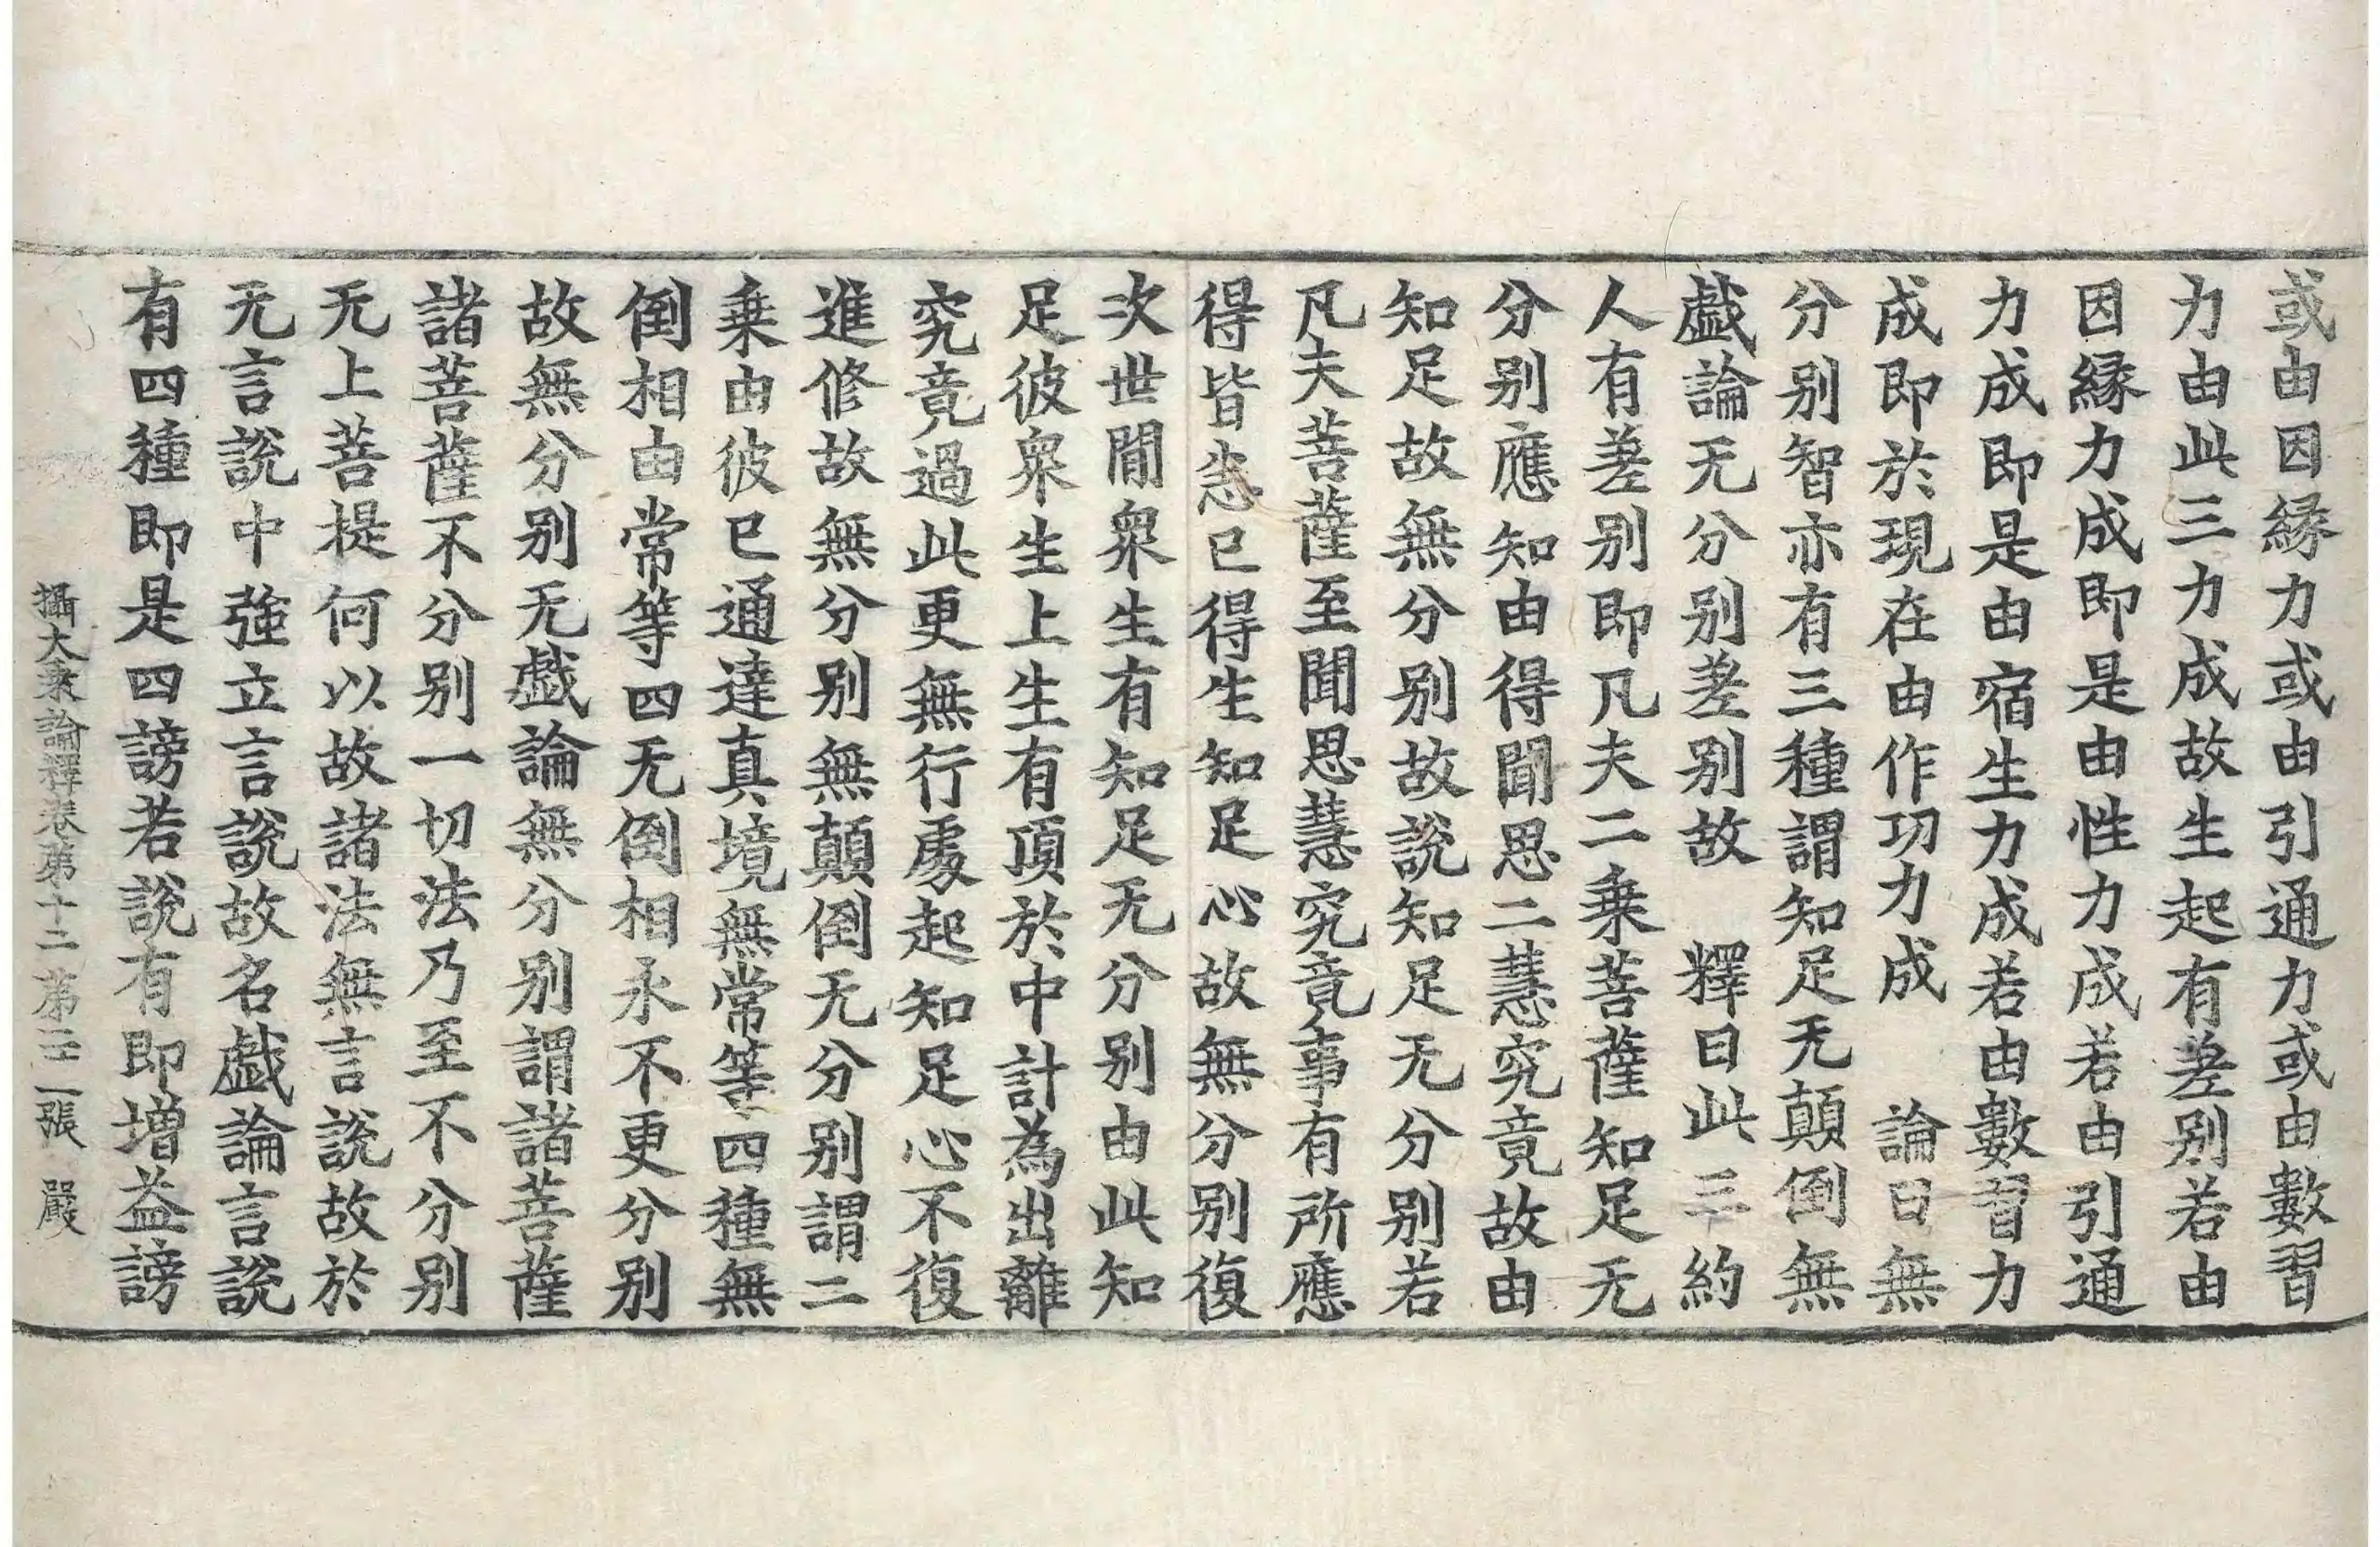 或由因縁力或由引通力或由數習
力由此三力成故生起有差别若由
因縁力成即是由性力成若由引通
力成即是由宿生力成若由數習力
成即於現在由作功力成　論曰無
分别智亦有三種謂知足无顛倒無
戲論无分别差别故　釋曰此三約
人有差别即凡夫二乗菩薩知足无
分别應知由得聞思二慧究竟故由
知足故無分别故說知足无分别若
凡夫菩薩至聞思慧究竟事有所應
得皆悉已得生知足心故無分别復
次世間衆生有知足无分别由此知
足彼衆生上生有頂於中計為出離
究竟過此更無行處起知足心不復
進修故無分别無顛倒无分别謂二
乗由彼已通達真境無常等四種無
倒相由常等四无倒相永不更分别
故無分别无戲論無分别謂諸菩薩
諸菩薩不分别一切法乃至不分别
无上菩提何以故諸法無言說故於
无言說中強立言說故名戲論言說
有四種即是四謗若說有即增益謗
攝大乗論釋卷第十二　第三二張　嚴